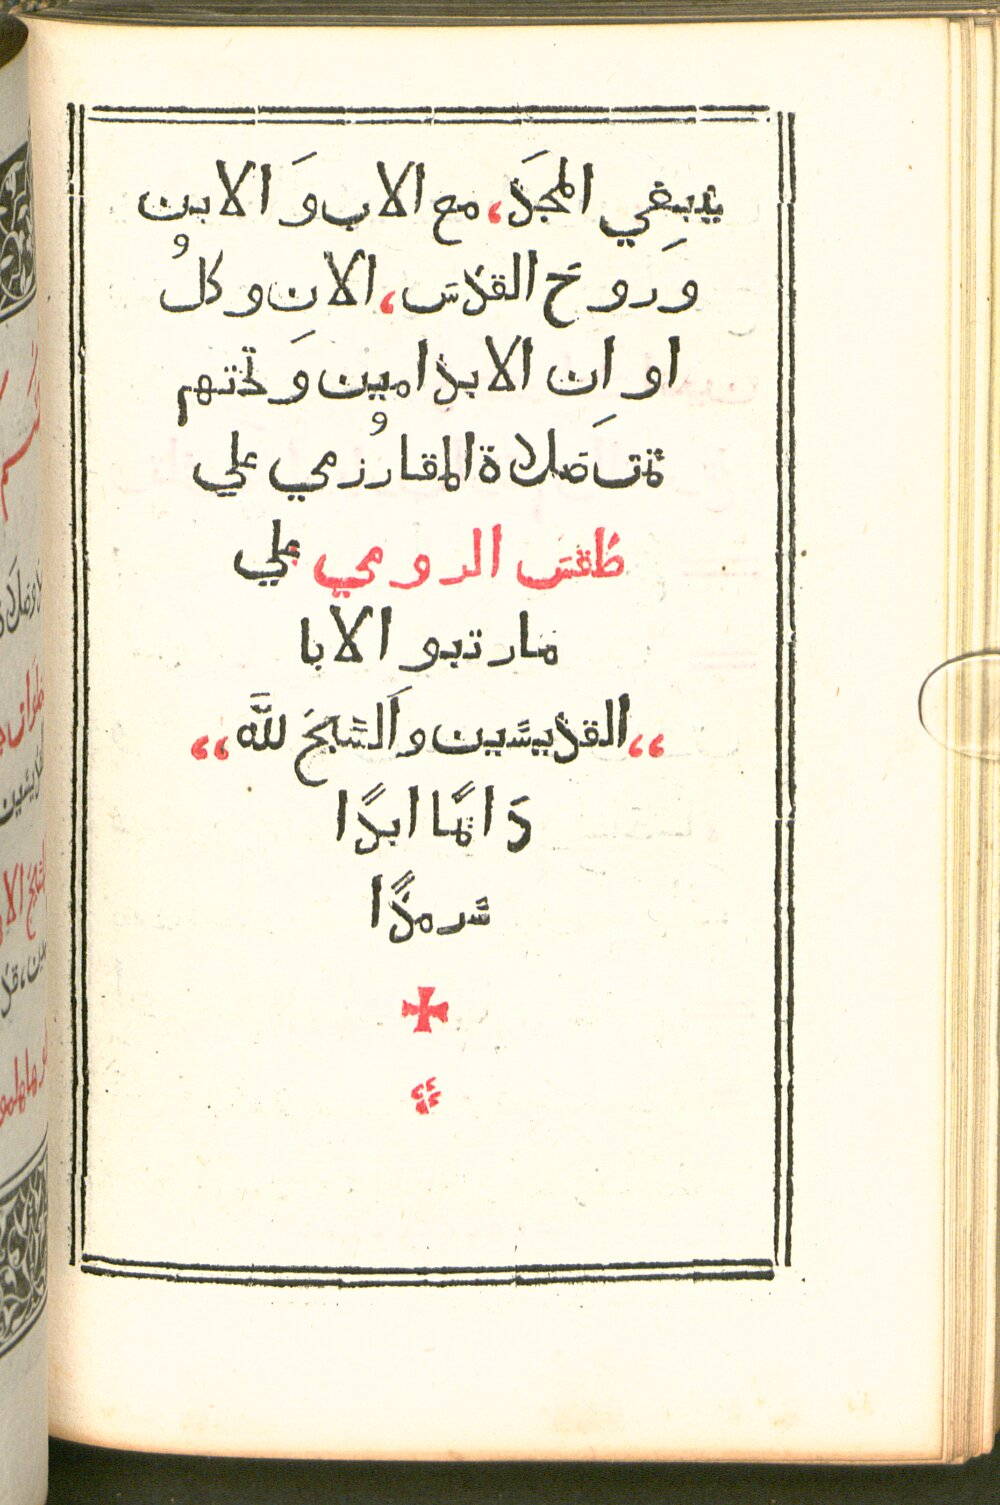 ينبغي المجدَ، مع الاب وَ الابن
وروحَ القدسَ، الانِ وكلُ
اوانِ الابد امين وَ ختتهم
تمت صلاة المغاررُ مي علي
طقس الرومي علي
مارتبو الابا
،،القديسيين والسَّبحَ للهَّ،،
دَاﻳﻤًا ابدًا
سرمدًا